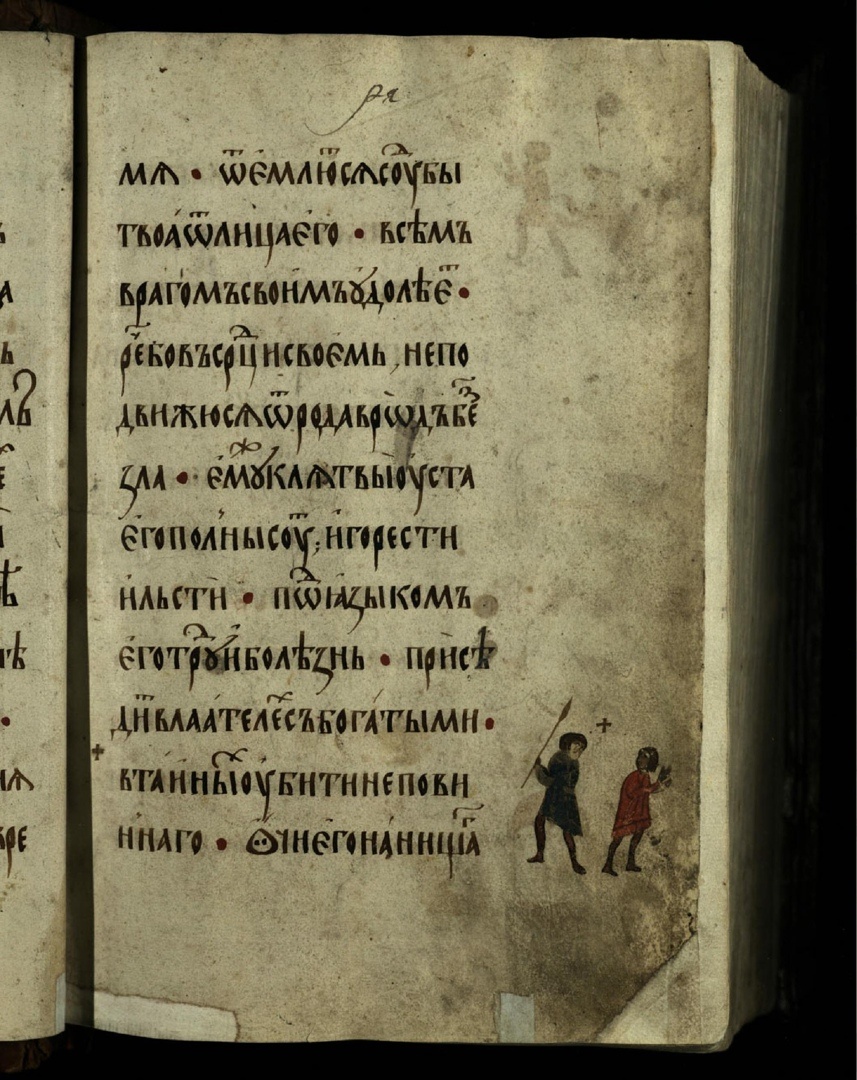 мѧ • ѿемлюⷮсѧсоуⷣбы
твоаѿлицаего • всѣмъ
врагомъсвоимъꙋдолѣеⷮ •
реⷱбовъсрⷣцисвоемь, непо
движюсѧѿродавродъбеⷥ
зла • емꙋжⷤеклѧтвыоуста
егополнысоуⷮ; игорести
ильсти • поⷣꙗзыкомъ
еготрꙋⷣиболѣзнь • присѣ
диⷮвлаателесъбогатыми •
втаиныⷯоубитинепови
ннаго • ѻчиегонанищаⷢ